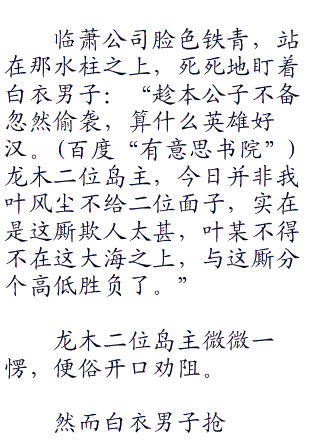 临萧公司脸色铁青，站
在那水柱之上，死死地盯着
白衣男子：“趁本公子不备
忽然偷袭，算什么英雄好
汉。(百度“有意思书院”)
龙木二位岛主，今日并非我
叶风尘不给二位面子，实在
是这厮欺人太甚，叶某不得
不在这大海之上，与这厮分
个高低胜负了。”
龙木二位岛主微微一
愣，便俗开口劝阻。
然而白衣男子抢